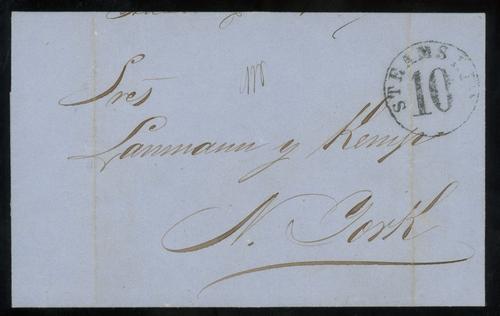 STEAMSHIP
10
Sres
Lanmann y Kemp
N. York